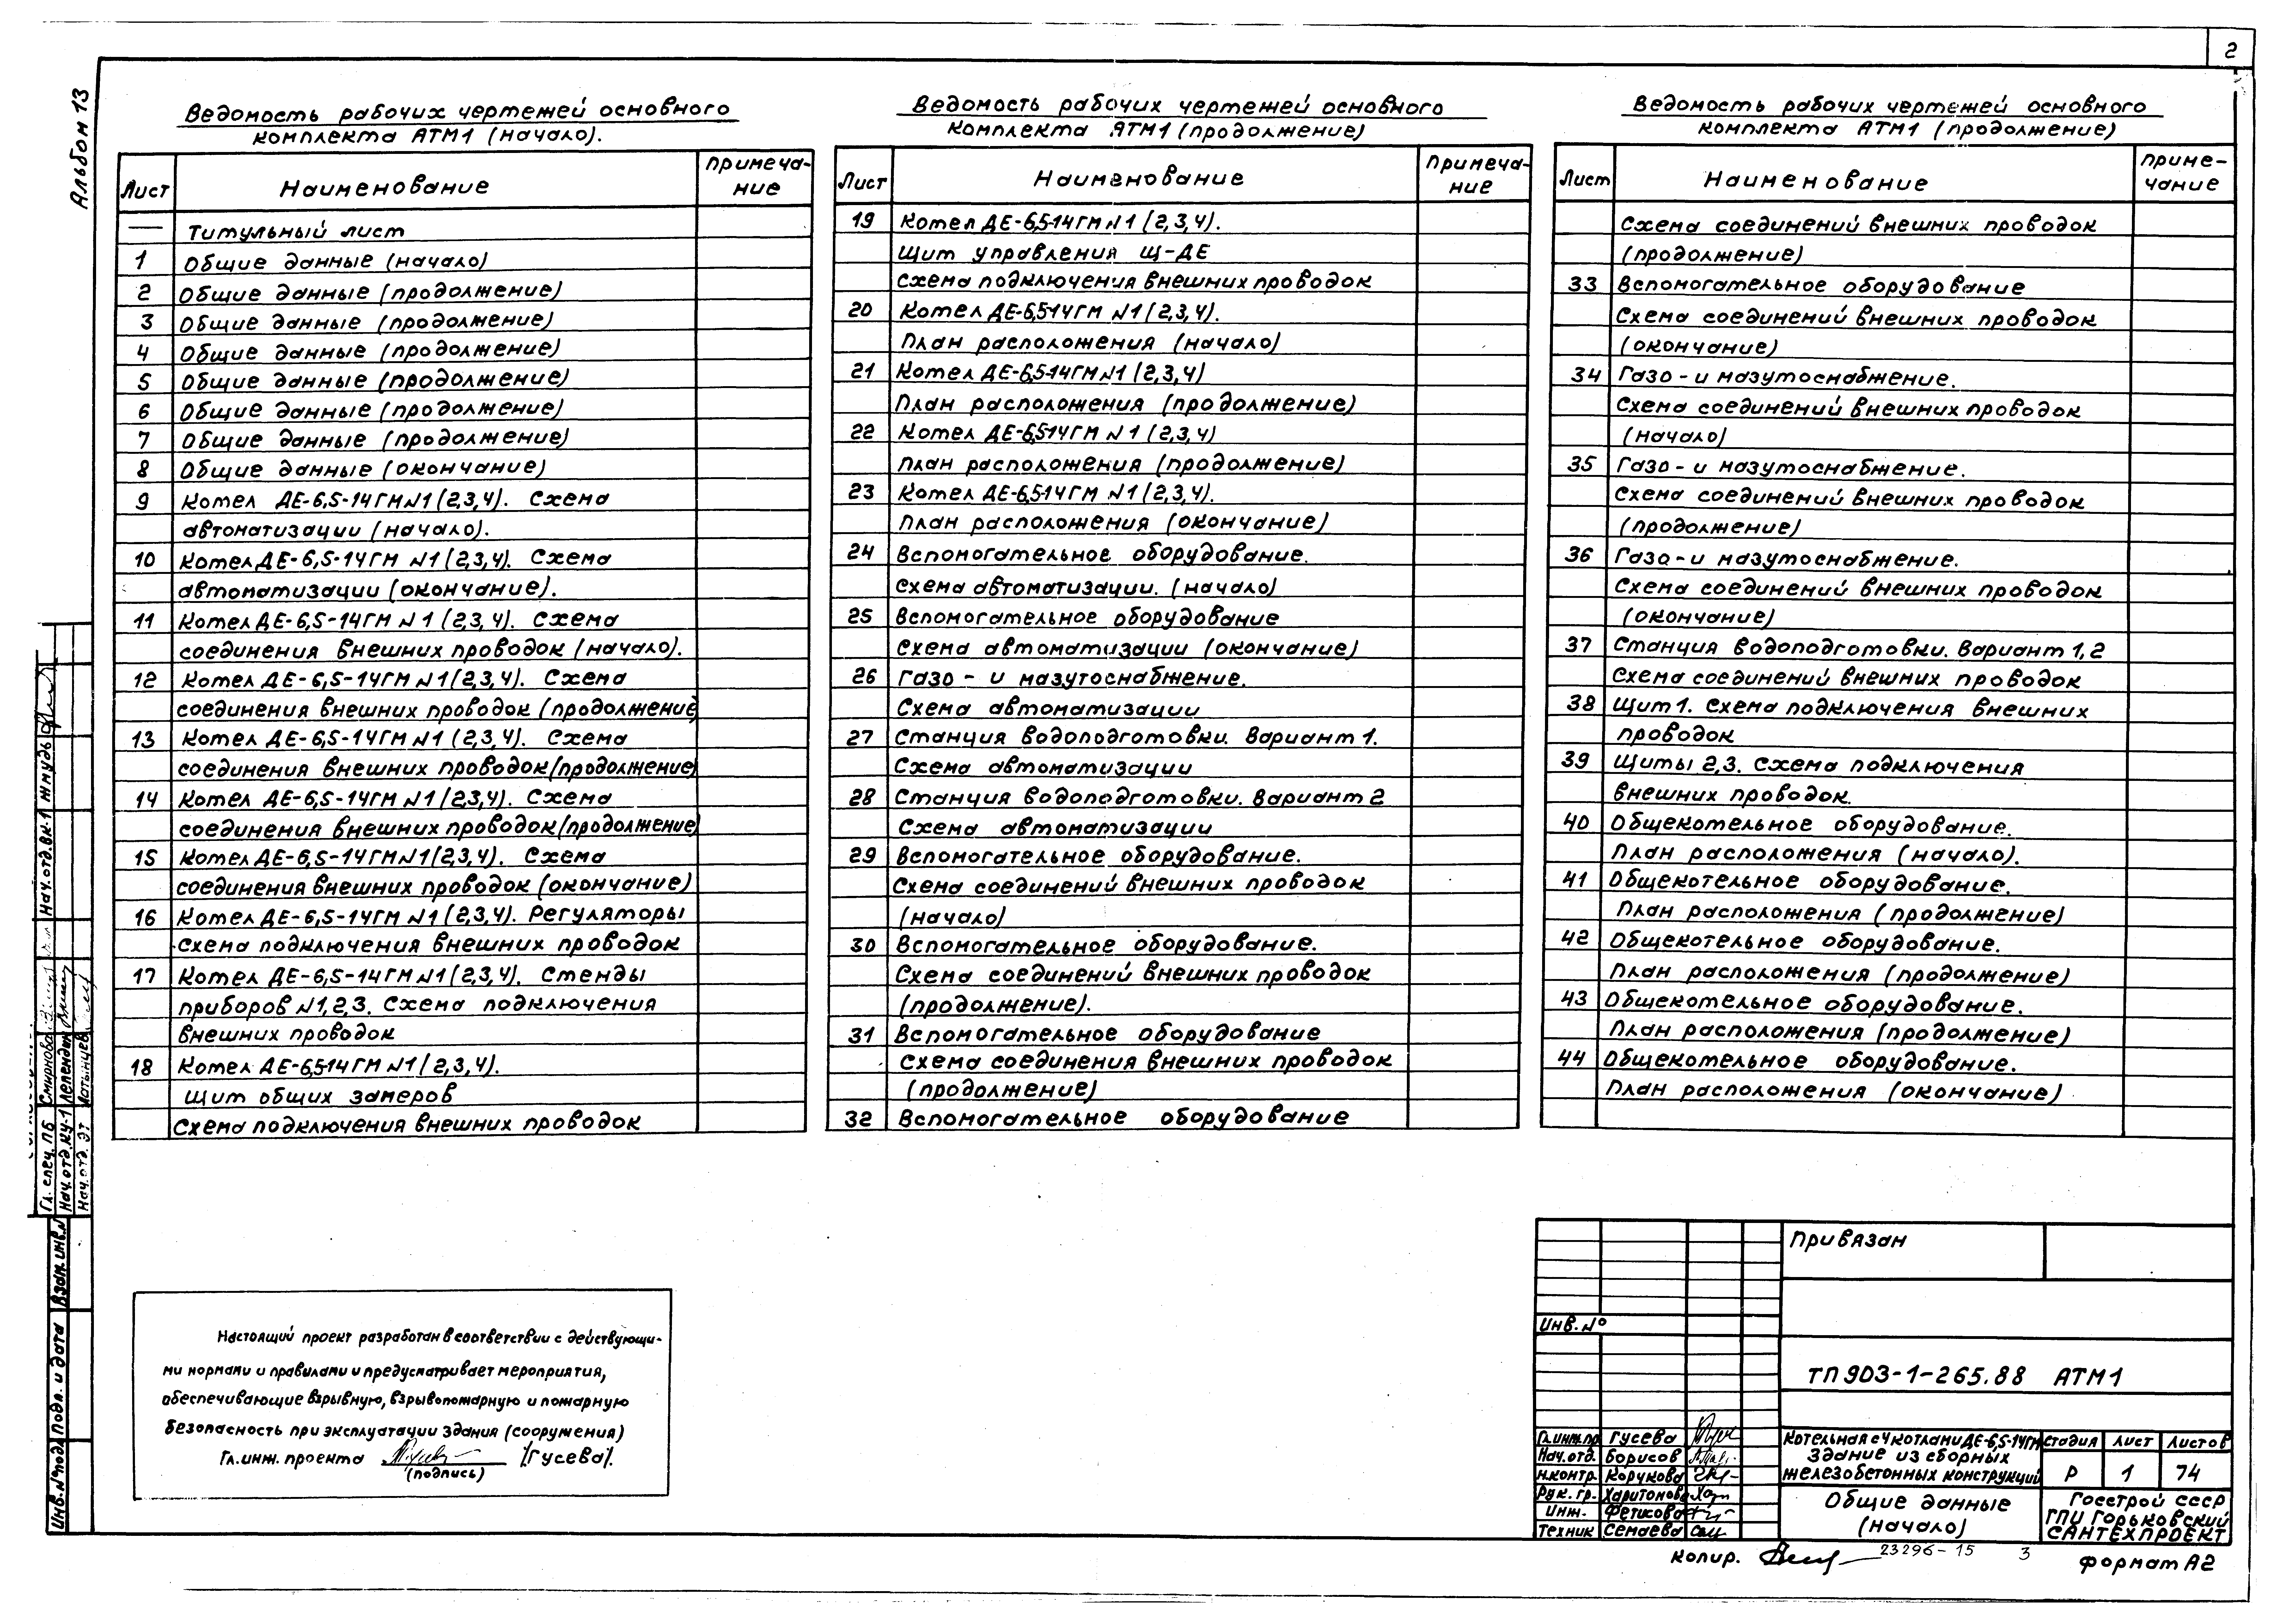 2
Альбом 13
Ведомость рабочих чертежей основного
комплекта АТМ1 (начало).
Лист
Наименование
Примеча-
ние
— Титульный лист
1 Общие данные (начало)
2 Общие данные (продолжение)
3 Общие данные (продолжение)
4 Общие данные (продолжение)
5 Общие данные (продолжение)
6 Общие данные (продолжение)
7 Общие данные (продолжение)
8 Общие данные (окончание)
9 Котел ДЕ-6,5-14ГМ N1 (2,3,4). Схема
автоматизации (начало).
10 Котел ДЕ-6,5-14ГМ N1 (2,3,4). Схема
автоматизации (окончание).
11 Котел ДЕ-6,5-14ГМ N1 (2,3,4). Схема
соединения внешних проводок (начало).
12 Котел ДЕ-6,5-14ГМ N1 (2,3,4). Схема
соединения внешних проводок (продолжение)
13 Котел ДЕ-6,5-14ГМ N1 (2,3,4). Схема
соединения внешних проводок (продолжение)
14 Котел ДЕ-6,5-14ГМ N1 (2,3,4). Схема
соединения внешних проводок (продолжение)
15 Котел ДЕ-6,5-14ГМ N1 (2,3,4). Схема
соединения внешних проводок (окончание)
16 Котел ДЕ-6,5-14ГМ N1 (2,3,4). Регуляторы
Схема подключения внешних проводок
17 Котел ДЕ-6,5-14ГМ N1 (2,3,4). Стенды
приборов N1,2,3. Схема подключения
внешних проводок
18 Котел ДЕ-6,5-14ГМ N1 (2,3,4).
Щит общих замеров
Схема подключения внешних проводок
Ведомость рабочих чертежей основного
комплекта АТМ1 (продолжение)
Лист
Наименование
Примеча-
ние
19 Котел ДЕ-6,5-14ГМ N1 (2,3,4).
Щит управления Щ-ДЕ
Схема подключения внешних проводок
20 Котел ДЕ-6,5-14ГМ N1 (2,3,4).
План расположения (начало)
21 Котел ДЕ-6,5-14ГМ N1 (2,3,4)
План расположения (продолжение)
22 Котел ДЕ-6,5-14ГМ N1 (2,3,4)
План расположения (продолжение)
23 Котел ДЕ-6,5-14ГМ N1 (2,3,4).
План расположения (окончание)
24 Вспомогательное оборудование.
Схема автоматизации. (начало)
25 Вспомогательное оборудование
Схема автоматизации (окончание)
26 Газо - и мазутоснабжение.
Схема автоматизации
27 Станция водоподготовки. Вариант 1.
Схема автоматизации
28 Станция водоподготовки. Вариант 2
Схема автоматизации
29 Вспомогательное оборудование.
Схема соединений внешних проводок
(начало)
30 Вспомогательное оборудование.
Схема соединений внешних проводок
(продолжение).
31 Вспомогательное оборудование
Схема соединения внешних проводок
(продолжение)
32 Вспомогательное оборудование
Ведомость рабочих чертежей основного
комплекта АТМ1 (продолжение)
Лист
Наименование
Приме-
чание
Схема соединений внешних проводок
(продолжение)
33 Вспомогательное оборудование
Схема соединений внешних проводок
(окончание)
34 Газо - и мазутоснабжение.
Схема соединений внешних проводок
(начало)
35 Газо - и мазутоснабжение.
Схема соединений внешних проводок
(продолжение)
36 Газо - и мазутоснабжение.
Схема соединений внешних проводок
(окончание)
37 Станция водоподготовки. Вариант 1,2
Схема соединений внешних проводок
38 Щит 1. Схема подключения внешних
проводок
39 Щиты 2,3. Схема подключения
внешних проводок.
40 Общекотельное оборудование.
План расположения (начало).
41 Общекотельное оборудование.
План расположения (продолжение)
42 Общекотельное оборудование.
План расположения (продолжение)
43 Общекотельное оборудование.
План расположения (продолжение)
44 Общекотельное оборудование.
План расположения (окончание)
Нач.отд.ВК-1 Жмудь
Гл. спец. ПБ Смирнова
Нач.отд.КУ-1
Нач.отд. ЭТ
Взам.инв.N
Подп. и дата
Инв.N°подл.
Настоящий проект разработан в соответствии с действующи-
ми нормами и правилами и предусматривает мероприятия,
обеспечивающие взрывную, взрывопожарную и пожарную
безопасность при эксплуатации здания (сооружения)
Гл.инж. проекта /Гусева/.
(подпись)
Привязан
Инв.N°
ТП 903-1-265.88 АТМ1
Гл.инж.пр. Гусева
Нач.отд. Борисов
Н.контр. Корукова
Рук. гр. Харитонова
Инж. Фетисова
Техник Семаева
Котельная с 4 котлами ДЕ-6,5-14ГМ
Здание из сборных
железобетонных конструкций
Стадия Лист Листов
Р 1 74
Общие данные
(начало)
Госстрой СССР
ГПИ Горьковский
САНТЕХПРОЕКТ
Копир.
23296-15 3
Формат А2